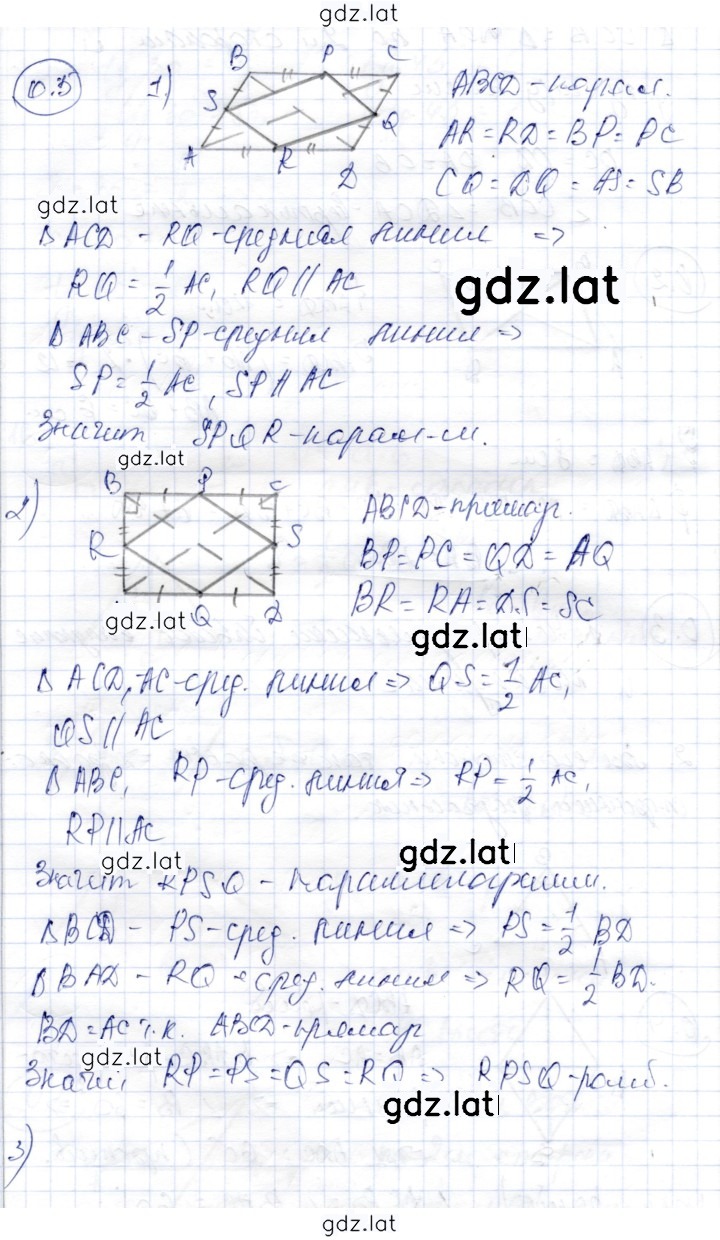 gdz.lat
10.5 1) B P C
S Q
A R D
ABCD - парал.
AR = RD = BP = PC
CQ = DQ = AS = SB
gdz.lat
Δ ACD - RQ - средняя линия =>
RQ = 1/2 AC, RQ || AC
gdz.lat
Δ ABC - SP - средняя линия =>
SP = 1/2 AC, SP || AC
Значит SPQR - парал-м.
gdz.lat
2) B P C
R S
Q D
ABCD - прямоуг.
BP = PC = QD = AQ
BR = RA = DS = SC
gdz.lat
gdz.lat
Δ ACD, AC - сред. линия => QS = 1/2 AC,
QS || AC
Δ ABC, RP - сред. линия => RP = 1/2 AC,
RP || AC
gdz.lat
gdz.lat
Значит RPSQ - параллелограмм.
Δ BCD - PS - сред. линия => PS = 1/2 BD
Δ BAD - RQ - сред. линия => RQ = 1/2 BD.
BD = AC т.к. ABCD - прямоуг
gdz.lat
Значит RP = PS = QS = RQ => RPSQ - ромб.
gdz.lat
3)
gdz.lat